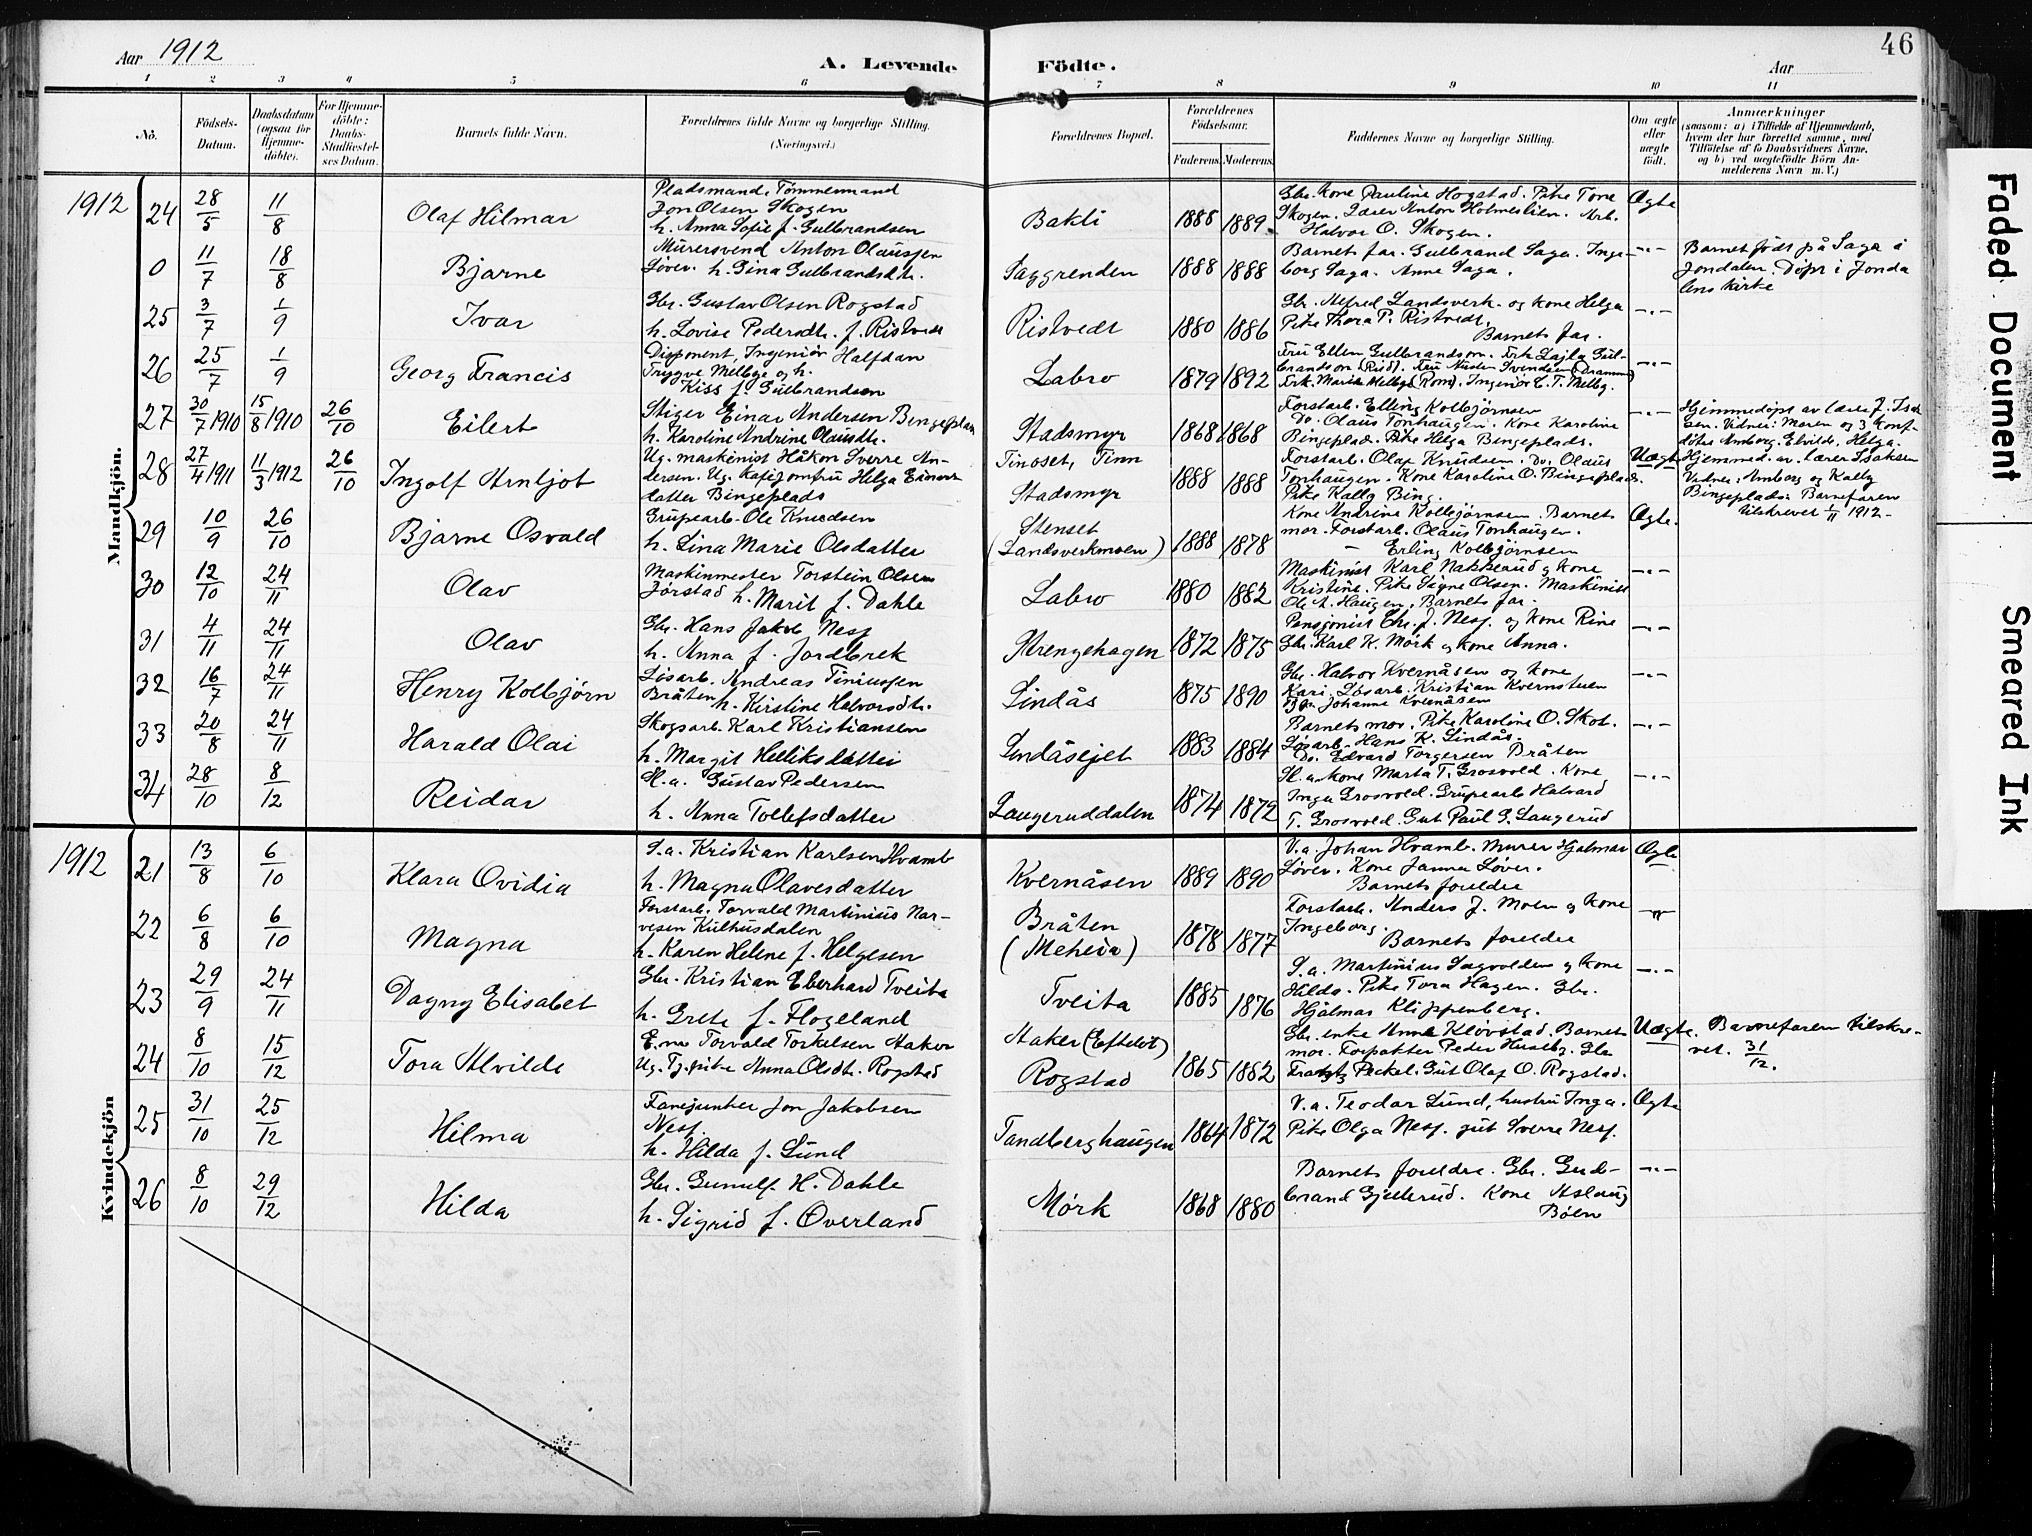 Aar 1912
A. Levende Födte.
Aar
46
1 2 3 4 5 6 7 8 9 10 11
No.
Födsels-Datum.
Daabsdatum (ogsaa for Hjemmedöbte).
For Hjemmedöbte: Daabs-Stadfæstelses Datum.
Barnets fulde Navn.
Forældrenes fulde Navne og borgerlige Stilling.
(Næringsvei.)
Forældrenes Bopæl.
Forældrenes Födselsaar.
Faderens. Moderens.
Faddernes Navne og borgerlige Stilling.
Om ægte eller uægte födt.
Anmærkninger
(saasom: a) i Tilfælde af Hjemmedaab, hvem der har forrettet samme, med Tilföielse af to Daabsvidners Navne, og b) ved uægtefödte Börn Anmelderens Navn m. V.)
Mandkjön.
1912
24 28/5 11/8 Olaf Hilmar
Pladsmand, Tømmermand
Jon Olsen Skogen
h. Anna Sofie f. Gulbrandsen
Bakli 1888 1889
Gbr. kone Pauline Hogstad. Pike Tone
Skogen. Lærer Anton Holmeslien. Arb.
Halvor O. Skogen.
Ægte
0 11/7 18/8 Bjarne
Murersvend Anton Olaussen
Løver. h. Gina Gulbrandsdtr.
Saggrenden 1888 1888
Barnets far. Gulbrand Saga. Inge-
borg Saga. Anne Saga.
-"-
Barnet født på Saga i
Jondalen. Døpt i Jonda
lens kirke
25 3/7 1/9 Ivar
Gbr. Gustav Olsen Rogstad
h. Lovise Pedersdtr. f. Ristvedt
Ristvedt 1880 1886
Gbr. Alfred Landsverk og kone Helga
Pike Thora P. Ristvedt.
Barnets far.
-"-
26 25/7 1/9 Georg Francis
Disponent, Ingeniør Halfdan
Trygve Melbye og h.
Kiss f. Gulbrandson
Labro 1879 1892
Fru Ellen Gulbrandson. Frk Lajla Gul-
brandson (Ris). Fru Svendsen (Drammen)
Frk. Marie Melbye (Rom). Ingeniør C. T. Melby.
-"-
27 30/7 1910 15/8 1910 26/10 Eilert
Stiger Einar Andersen Bingeplas
h. Karoline Andrine Olausdtr.
Stadsmyr 1868 1868
Forstarb. Elling Kolbjørnsen
Do. Olaus Tonhaugen. Kone Karoline
Bingeplads. Pike Helga Bingeplads.
-"-
Hjemmedøpt av lærer J. Isak
sen. Vidner: Moren og 3 konf-
døtre Amborg, Elvilde, Helga.
28 27/4 1911 11/3 1912 26/10 Ingolf Arnljot
Ug. maskinist Håkon Sverre An-
dersen. Ug. kafejomfru Helga Einars
datter Bingeplads
Tinoset, Tinn
Stadsmyr
1888 1888
Forstarb. Olaf Knudsen. Do. Olaus
Tonhaugen. Kone Karoline O. Bingeplads.
Pike Kally Bing.
Uægte
Hjemmed. av lærer Isaksen
Vidner: Amborg og Kally
Bingeplads: Barnefaren
tilskrevet 1/11 1912-
29 10/9 26/10 Bjarne Osvald
Grupearb. Ole Knudsen
h. Lina Marie Olsdatter
Stenset
(Landsverkmoen) 1888 1878
Kone Andrine Kolbjørnsen. Barnets
mor. Forstarb. Olaus Tonhaugen.
— Erling Kolbjørnsen
Ægte.
30 12/10 24/11 Olav
Maskinmester Torstein Olsen
Jørstad h. Marit f. Dahle
Labro 1880 1882
Maskinist Karl Nakkerud og kone
Kristine. Pike Signe Olsen. Maskinist
Ole A. Haugen. Barnets far.
-"-
31 4/11 24/11 Olav
Gbr. Hans Jakob Nesf
h. Anna f. Jordbrek
Strengehagen 1872 1875
Pensjonist Chr. J. Nesf. og kone Rine
Gbr. Karl K. Mørk og kone Anna.
-"-
32 16/7 24/11 Henry Kolbjørn
Løsarb. Andreas Tiniussen
Bråten h. Kirstine Halvorsdtr.
Lindås 1875 1890
Gbr. Halvor Kvernåsen og kone
Kari. Løsarb. Kristian Kvernstuen
Johanne Kvernåsen
-"-
33 20/8 24/11 Harald Olai
Skogsarb. Karl Kristiansen
h. Margit Helliksdatter
Lindåsejet 1883 1884
Barnets mor. Pike Karoline O. Skot.
Løsarb. Hans K. Lindås.
Do. Edvard Torgersen Bråten
-"-
34 28/10 8/12 Reidar
Sl.a. Gustav Pedersen
h. Anna Tollefsdatter
Laugeruddalen 1874 1872
Sl.a. kone Marta T. Grosvold. Kone
Inga Grosvold. Grupearb Halvard
T. Grosvold. Gut Paul G. Laugerud
-"-
Kvindekjön
1912
21 13/8 6/10 Klara Ovidia
S.a. Kristian Karlsen Hvamb
h. Magna Olavesdatter
Kvernåsen 1889 1890
V.a. Johan Hvamb. Murer Hjalmar
Løver. Kone Janna Løver.
Barnets foreldre
Ægte
22 6/8 6/10 Magna
Forstarb. Torvald Martinius Nar-
vesen Kulhusdalen
h. Karen Helene f. Helgesen
Bråten
(Meheia) 1878 1877
Forstarb. Anders J. Moen og kone
Ingeborg.
Barnets foreldre
-"-
23 29/9 24/11 Dagny Elisabet
Gbr. Kristian Eberhard Tveita
h. Grete f. Flogeland
Tveita 1885 1876
S.a. Martinius Sagvolden og kone
Hilda. Pike Tora Hagen. Gbr.
Hjalmar Klippenberg.
-"-
24 8/10 15/12 Tora Alvilde
E.m. Torvald Torkelsen Aaker
Ug. Tj. pike Anna Olsdtr. Rogstad
Aaker (Efteløt)
Rogstad 1865 1882
Gbr. enke Anne Kløvstad. Barnets
mor. Forpakter Peder Huseby. Gbr
Frantz Peckel. Gut Olaf O. Rogstad.
Uægte.
Barnefaren tilskre-
vet. 31/12.
25 31/10 25/12 Hilma
Fanejunker Jon Jakobsen
Nesf.
h. Hilda f. Lund
Tandberghaugen 1864 1872
V.a. Teodor Lund, hustru Inga.
Pike Olga Nesf. gut Sverre Nesf.
Ægte
26 8/10 29/12 Hilda
Gbr. Gunulf H. Dahle
h. Sigrid f. Overland
Mørk 1868 1880
Barnets foreldre. Gbr. Gud-
brand Gjellerud. Kone Aslaug
Bøen
-"-
Faded Document
Smeared Ink